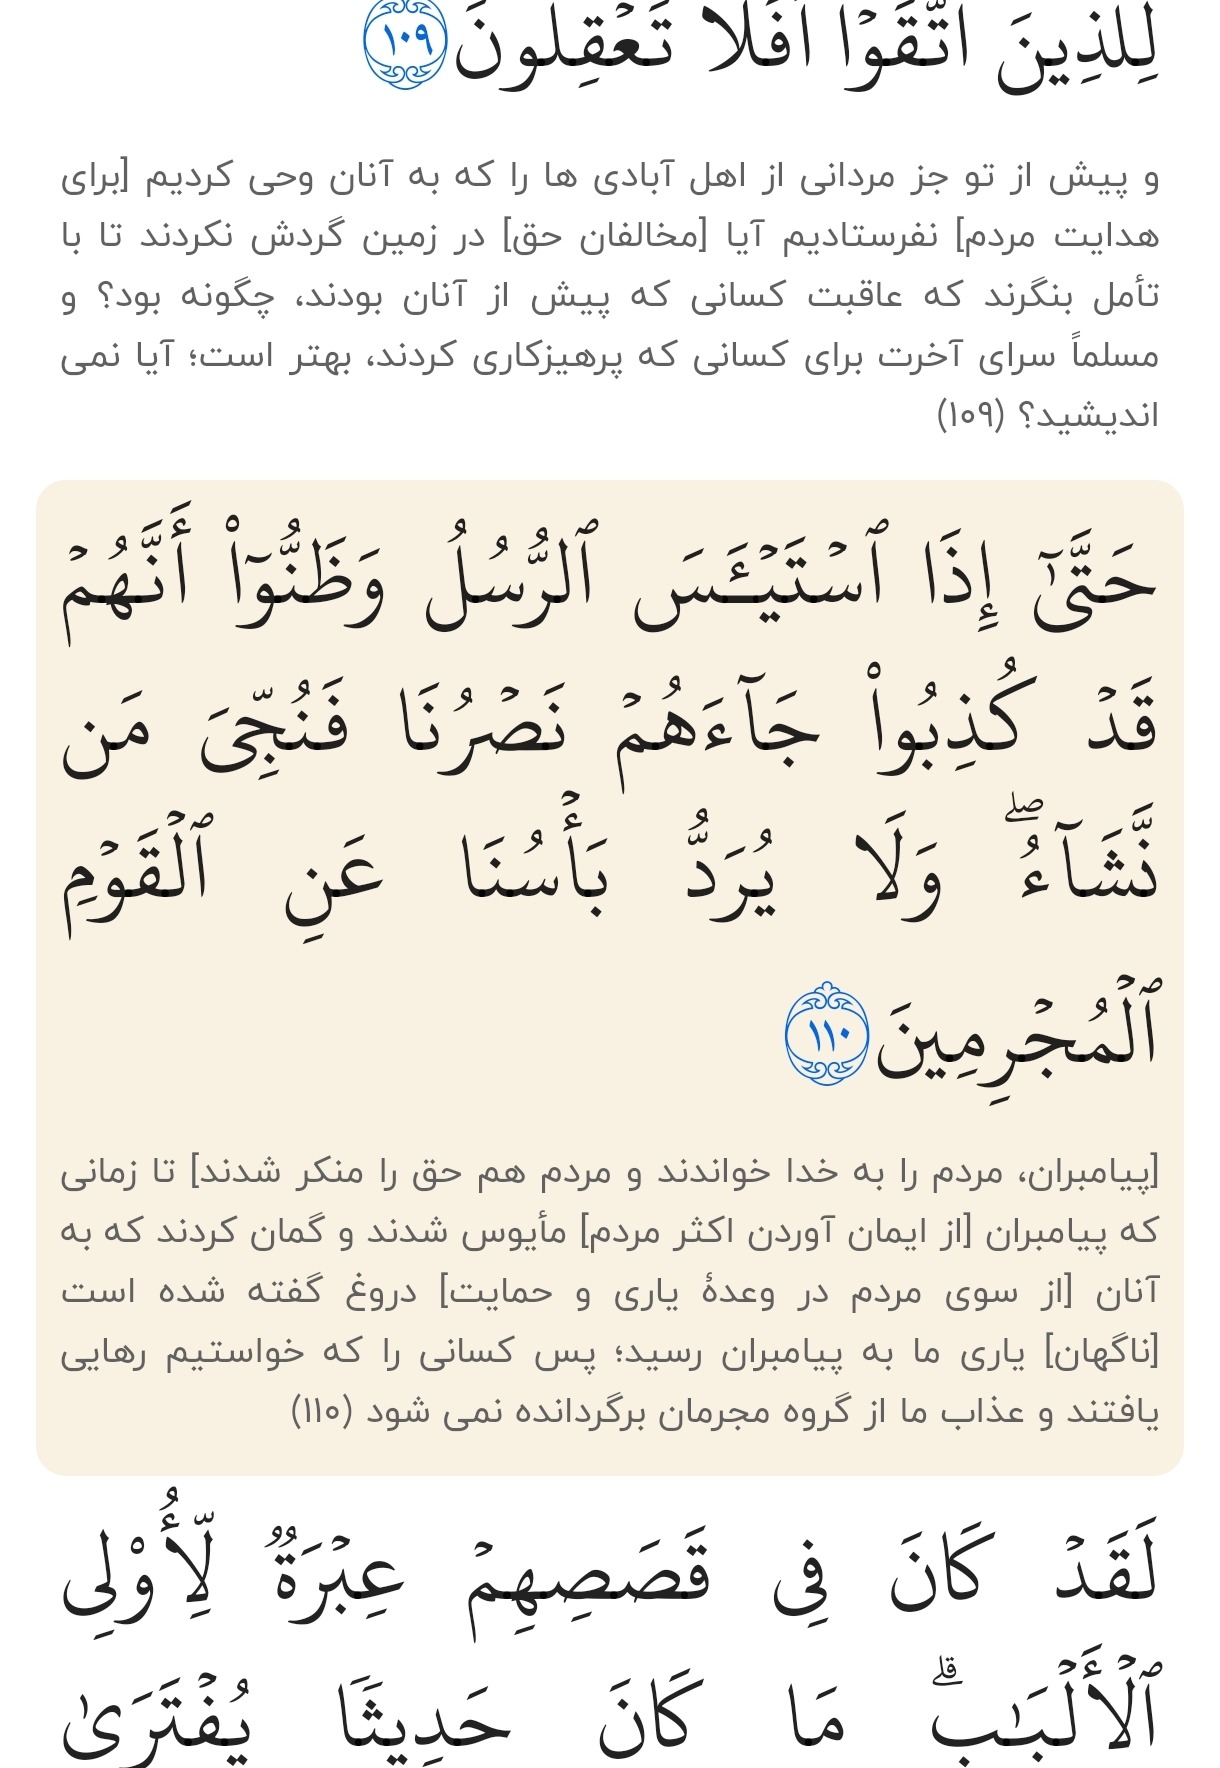 لِلَّذِينَ ٱتَّقَوۡا۟ أَفَلَا تَعۡقِلُونَ ۱۰۹
و پیش از تو جز مردانی از اهل آبادی ها را که به آنان وحی کردیم [برای
هدایت مردم] نفرستادیم آیا [مخالفان حق] در زمین گردش نکردند تا با
تأمل بنگرند که عاقبت کسانی که پیش از آنان بودند، چگونه بود؟ و
مسلماً سرای آخرت برای کسانی که پرهیزکاری کردند، بهتر است؛ آیا نمی
اندیشید؟ (۱۰۹)
حَتَّىٰٓ إِذَا ٱسۡتَيۡـَٔسَ ٱلرُّسُلُ وَظَنُّوٓا۟ أَنَّهُمۡ
قَدۡ كُذِبُوا۟ جَآءَهُمۡ نَصۡرُنَا فَنُجِّىَ مَن
نَّشَآءُۖ وَلَا يُرَدُّ بَأۡسُنَا عَنِ ٱلۡقَوۡمِ
ٱلۡمُجۡرِمِينَ ۱۱۰
[پیامبران، مردم را به خدا خواندند و مردم هم حق را منکر شدند] تا زمانی
که پیامبران [از ایمان آوردن اکثر مردم] مأیوس شدند و گمان کردند که به
آنان [از سوی مردم در وعدهٔ یاری و حمایت] دروغ گفته شده است
[ناگهان] یاری ما به پیامبران رسید؛ پس کسانی را که خواستیم رهایی
یافتند و عذاب ما از گروه مجرمان برگردانده نمی شود (۱۱۰)
لَقَدۡ كَانَ فِى قَصَصِهِمۡ عِبۡرَةٌ لِّأُو۟لِى
ٱلۡأَلۡبَٰبِۗ مَا كَانَ حَدِيثًا يُفۡتَرَىٰ